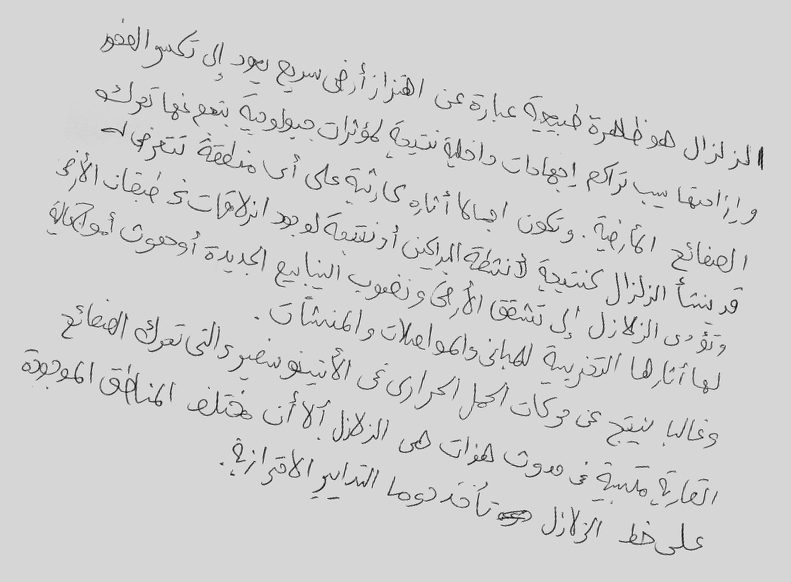 الزلزال هو ظاهرة طبيعية عبارة عن اهتزاز أرضى سريع يعود إلى تكسر الصخور
وإزاحتها سبب تراكم إجهادات داخلية نتيجة لمؤثرات جيولوجية ينجم عنها تحرك
الصفائح الأرضية. وتكون اجمالا أثاره كارثية على أى منطقة تتعرض له
قد ينشأ الزلزال كنتيجة لأنشطة البراكين أو نتيجة لوجود انزلاقات فى طبقات الأرض
وتؤدى الزلازل إلى تشقق الأرض ونضوب الينابيع الجديدة أو حدوث أمواج عالية
لها أثارها التخريبية للمبانى والمواصلات والمنشآت.
وغالبا ينتج عن حركات الحمل الحرارى فى الأتينوسفير والتى تحرك الصفائح
القارية متسببة فى حدوث هزات هى الزلازل ألا أن مختلف المناطق الموجودة
على خط الزلازل تأخذ دوما التدابير الاحترازية.